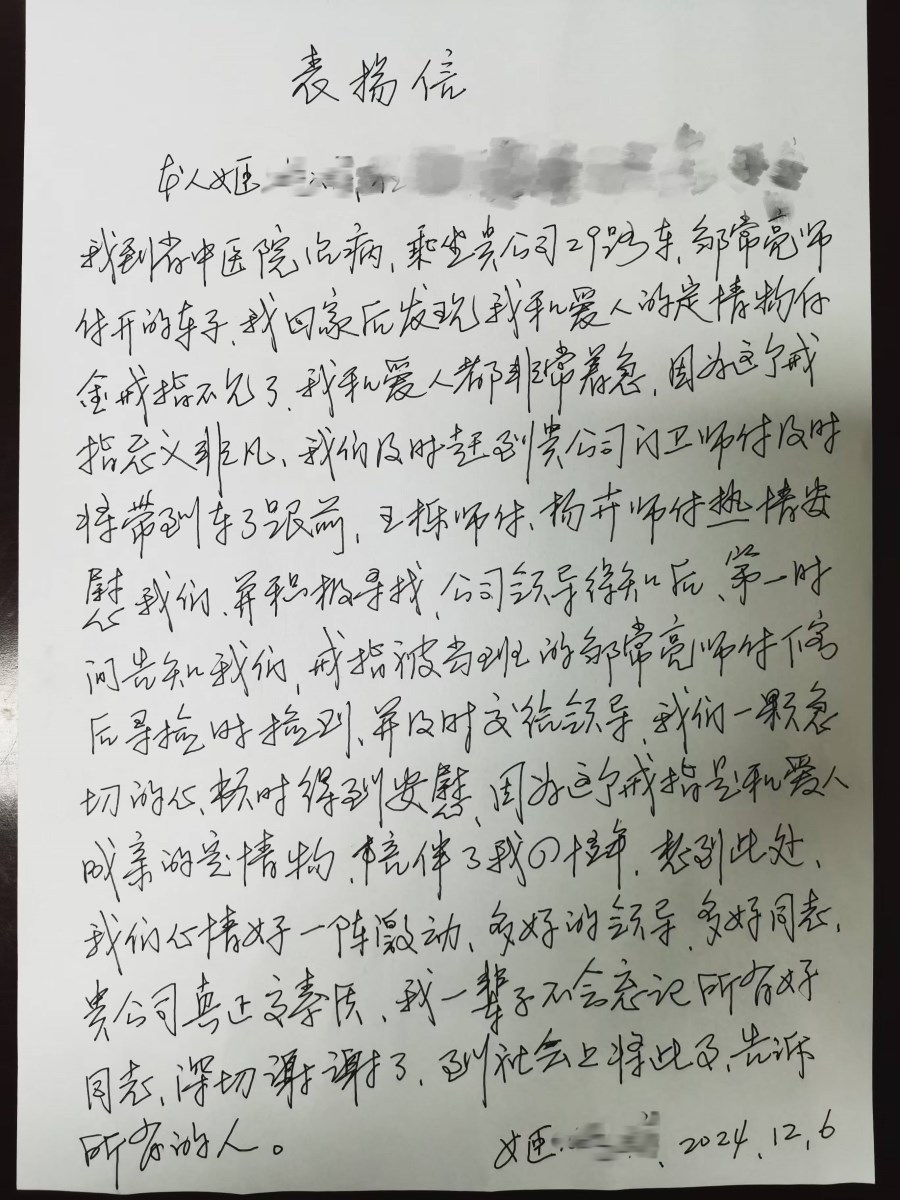 表扬信
本人姬
我到省中医院治病、乘坐贵公司29路车、邹常亮师
付开的车子、我回家后发现我和爱人的定情物件
金戒指不见了、我和爱人都非常着急、因为这个戒
指意义非凡、我们及时赶到贵公司门卫师付及时
将带到车子跟前、王栋师付、杨卉师付热情安
慰我们、并积极寻找、公司领导得知后、第一时
间告知我们、戒指被当班的邹常亮师付下客
后寻捡时捡到、并及时交给领导、我们一颗急
切的心、顿时得到安慰、因为这个戒指是和爱人
成亲的定情物、陪伴了我四十年、想到此处、
我们心情好一阵激动、多好的领导、多好同志、
贵公司真正高素质、我一辈子不会忘记所有好
同志、深切谢谢了、到社会上将此事、告诉
所有的人。
姬 2024、12、6